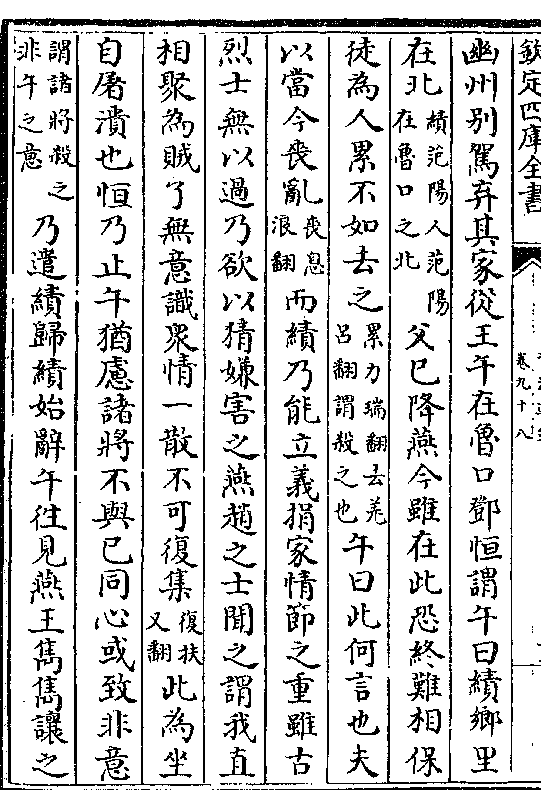 欽定四庫全書
卷九十八
幽州别駕弃其家從王午在魯口鄧恒謂午曰績鄉里
在北績范陽人范陽在魯口之北父已降燕今雖在此恐終難相保
徒為人累不如去之累力瑞翻去羌吕翻謂殺之也午曰此何言也夫
以當今喪亂喪息浪翻而績乃能立義捐家情節之重雖古
烈士無以過乃欲以猜嫌害之燕趙之士聞之謂我直
相聚為賊了無意識衆情一散不可復集復扶又翻此為坐
自屠潰也恒乃止午猶慮諸將不與已同心或致非意
謂諸將殺之非午之意乃遣績歸績始辭午往見燕王雋雋讓之